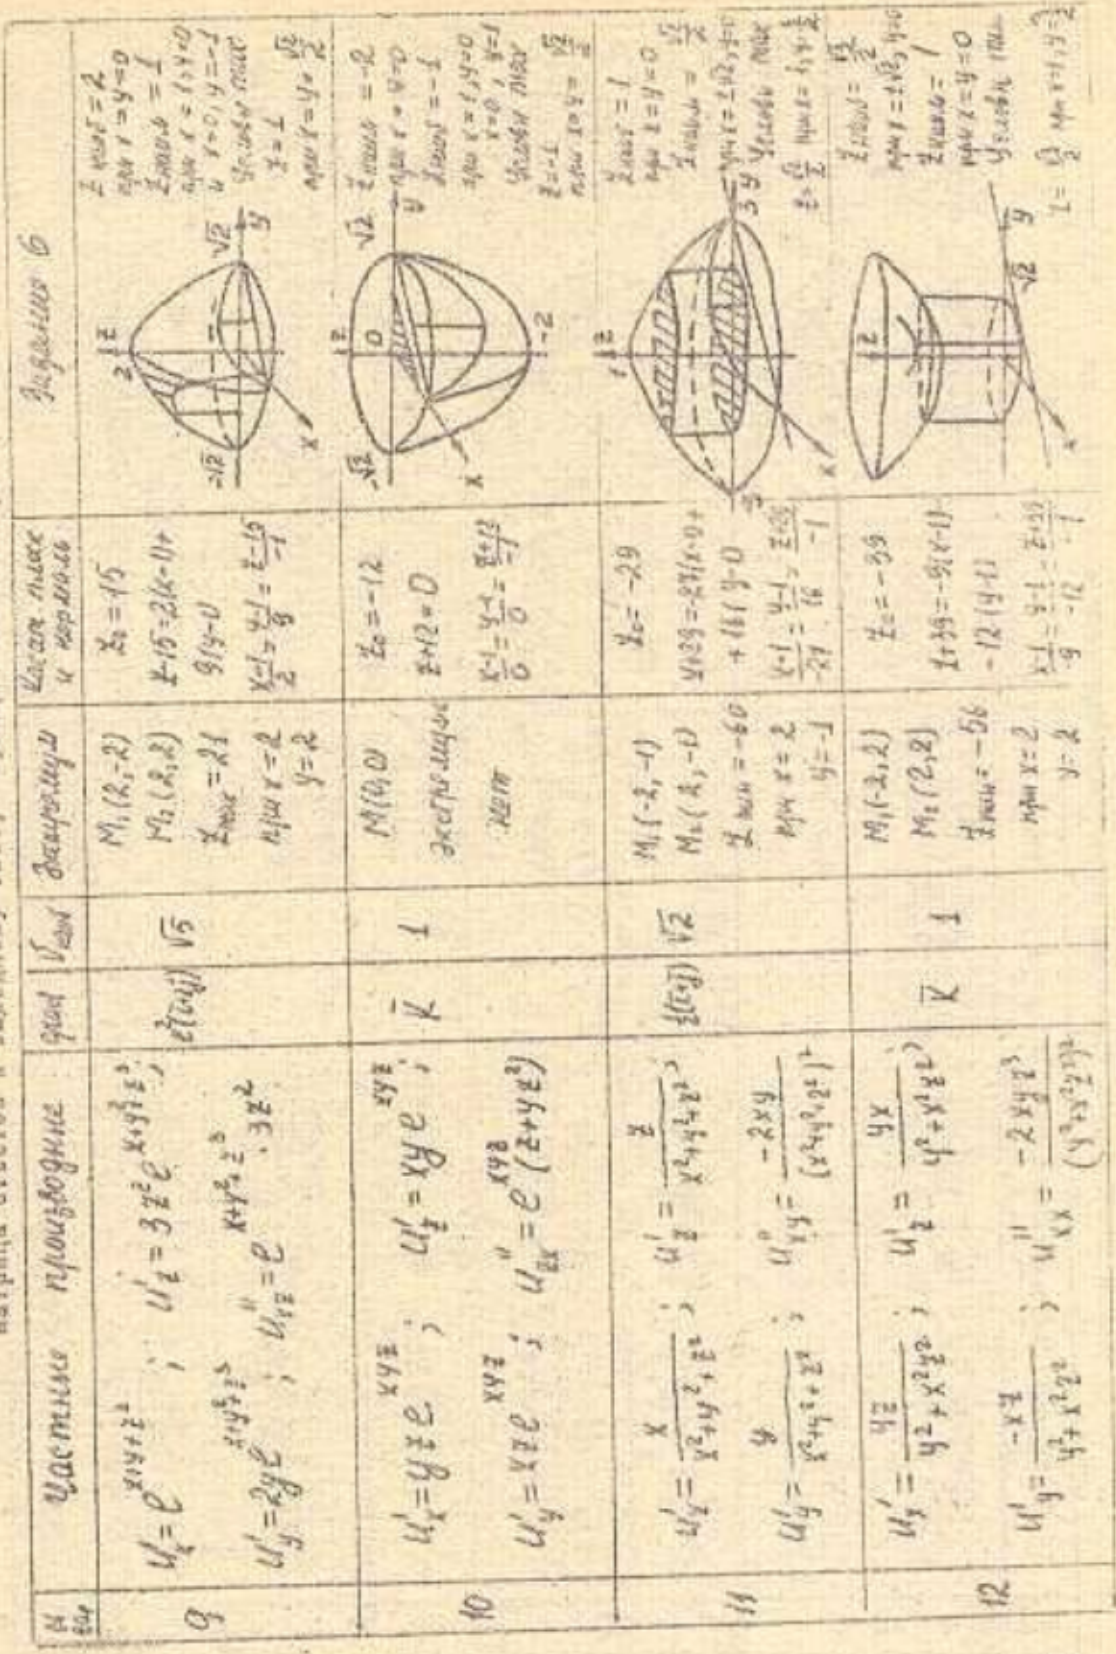 № вар
Частные производные
grad
Экстремум
Касат. плоск и нормаль
Задание 6
9
U'x = e^x+y²+z³ ; U'z = 3z² e^x+y²+z³ ;
U'y = 2y e^x+y²+z³ ; U''xz = e^x+y²+z³ · 3z²
√5
M₁(2,-2)
M₂(2,2)
Zmax = 21
при x = 2
y = 2
Z₀ = 15
z-15 = 2(x-1)+
9(y-1)
x-1/2 = y-1/9 = z-15/-1
Z
2
-√2
√2
x
y
Z наиб = 2
при x = y = 0
Z наим = 1
при x = 1, y = 0
и x = 0, y = -1
Условн max
z = 1
при x = y = √2/2
10
U'x = yz e^xyz ; U'z = xy e^xyz ;
U'y = xz e^xyz ; U''zx = e^xyz (z+yz²)
K̄
1
M(0,0)
экстремума
нет
Z₀ = -12
z+12 = 0
x-1/0 = y-1/0 = z+12/-1
Z
0
-√2
√2
-2
x
y
Z наим = -2
при x = y = 0
Z наиб = -1
при x = 1, y = 0
x = 0, y = 1
Условн max
z = -1
при x = y = √2/2
11
U'x = x/x²+y²+z² ; U'z = z/x²+y²+z² ;
U'y = y/x²+y²+z² ; U''xy = -2xy/(x²+y²+z²)²
√2
M₁(-2,-1)
M₂(2,-1)
Z мин = -60
при x = 2
y = -1
Z₀ = -29
+29 = -27(x-1)+
+16(y-1)
x-1/-27 = y-1/16 = z+29/-1
1
Z
3
x
y
Z наиб = 1
при x = y = 0
Z наим = √2/2
Условн max
12
U'x = yz/y²+x²z² ; U'z = yx/y²+x²z² ;
U'y = -xz/y²+x²z² ; U''xx = -2xyz³/(y²+x²z²)²
K̄
1
M₁(-2,2)
M₂(2,2)
Z мин = -56
при x = 2
y = 2
Z₀ = -39
z+39 = -9(x-1)-
-12(y-1)
x-1/-9 = y-1/-12 = z+39/-1
Z
√2
x
y
Z наим = 1
при x = y = 0
Условн